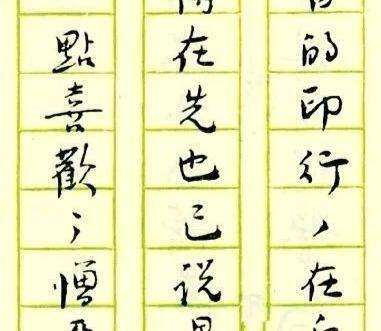 的印行，在
在先也已说
點喜歡，憎